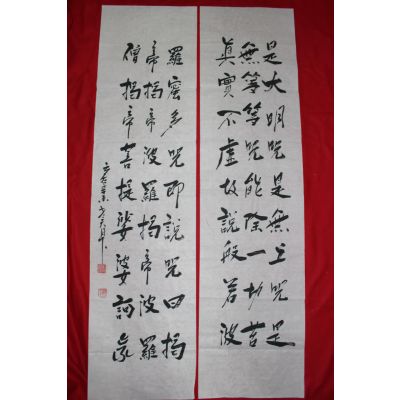 是大明咒是無上咒是
無等等咒能除一切苦
眞實不虛故說般若波
羅蜜多咒即說咒曰揭
帝揭帝波羅揭帝波羅
僧揭帝菩提娑婆訶